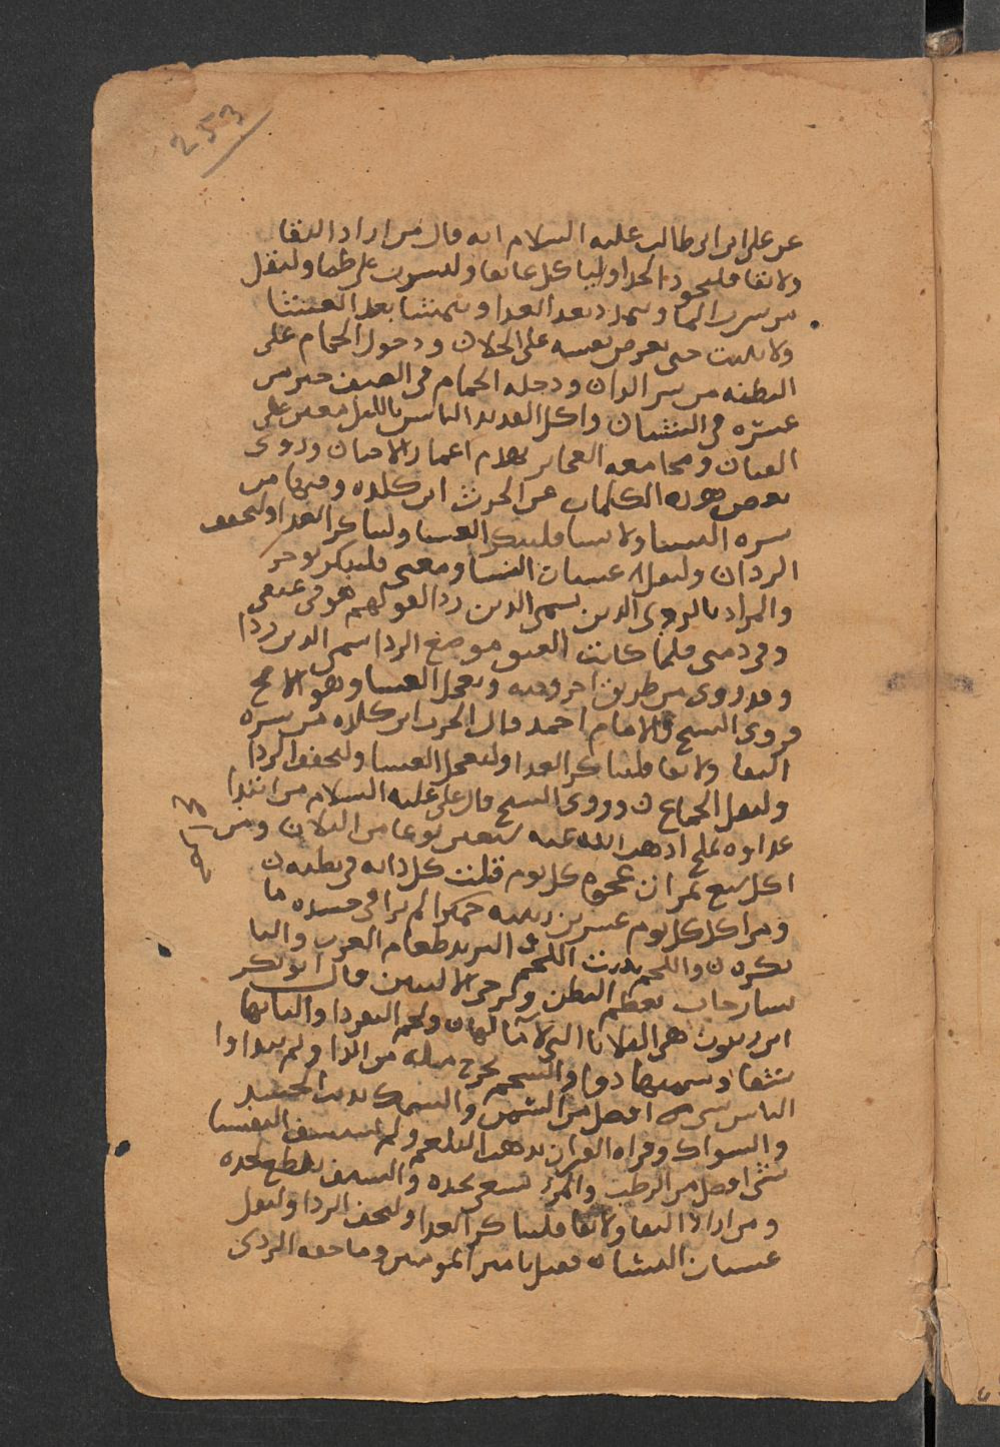 253
عن علي ابن ابي طالب عليه السلام انه قال من اراد البقا
ولا بقا فليجود الحذا ولياكل على نقا وليشرب على ظما وليقل
من شرب الما ويمدد بعد الغدا ويتمشا بعد العشا
ولا يبيت حتى يعرض نفسه على الخلا ودخول الحمام على
البطنه من شر الدا ودخله الحمام في الصيف خير من
عشره في الشتا واكل القديد اليابس بالليل معين على
الفنا ومجامعه العجايز تهدم اعمار الاحيا وروى
بعض هذه الكلمات عن الحرث ابن كلده وفيها من
سره النسا ولا نسا فليبكر العشا وليباكر الغدا وليخفف
الردا وليقل غشيان النسا ومعنى فليبكر يوخر
والمراد بالردى الدين سمي الدين ردا لقولهم هو في عنقي
وفي ذمتي فلما كانت العنق موضع الردا سمي الدين ردا
وقد روى من طريق اخر وفيه وتعجيل العشا وهو الاصح
فروى الشيخ الامام احمد قال الحرث ابن كلده من سره
البقا ولا بقا فليباكر الغدا وليعجل العشا وليخفف الردا
وليقل الجماع وروى الشيخ قال علي عليه السلام من ابتدا
غداوه بملح اذهب الله عنه سبعين نوعا من البلا ومن
اكل سبع تمرات عجوه كل يوم قتلت كل دابه في بطنه
ومن اكل كل يوم عشرين زبيبه حمرا لم يرا في جسده ما
يكره واللحم ينبت اللحم الثريد طعام العرب والبا
سيارجات تعظم البطن وترخي الاليتين قال ابو بكر
ولحم البقر دا والبانها
شفا وسمنها دوا والشحم يخرج مثله من الدا ولم يتداوا
الناس بشي افضل من السمن والسمك يذيب الجسد
والسواك وقراه القران يذهب البلغم ولم تستشف النفسا
بشي افضل من الرطب والمرء يسعى بجده والسيف يقطع بحده
ومن اراد البقا ولا بقا فليباكر الغدا وليخف الردا وليقل
غشيان النسا قيل يا امير المومنين وما خفه الردى